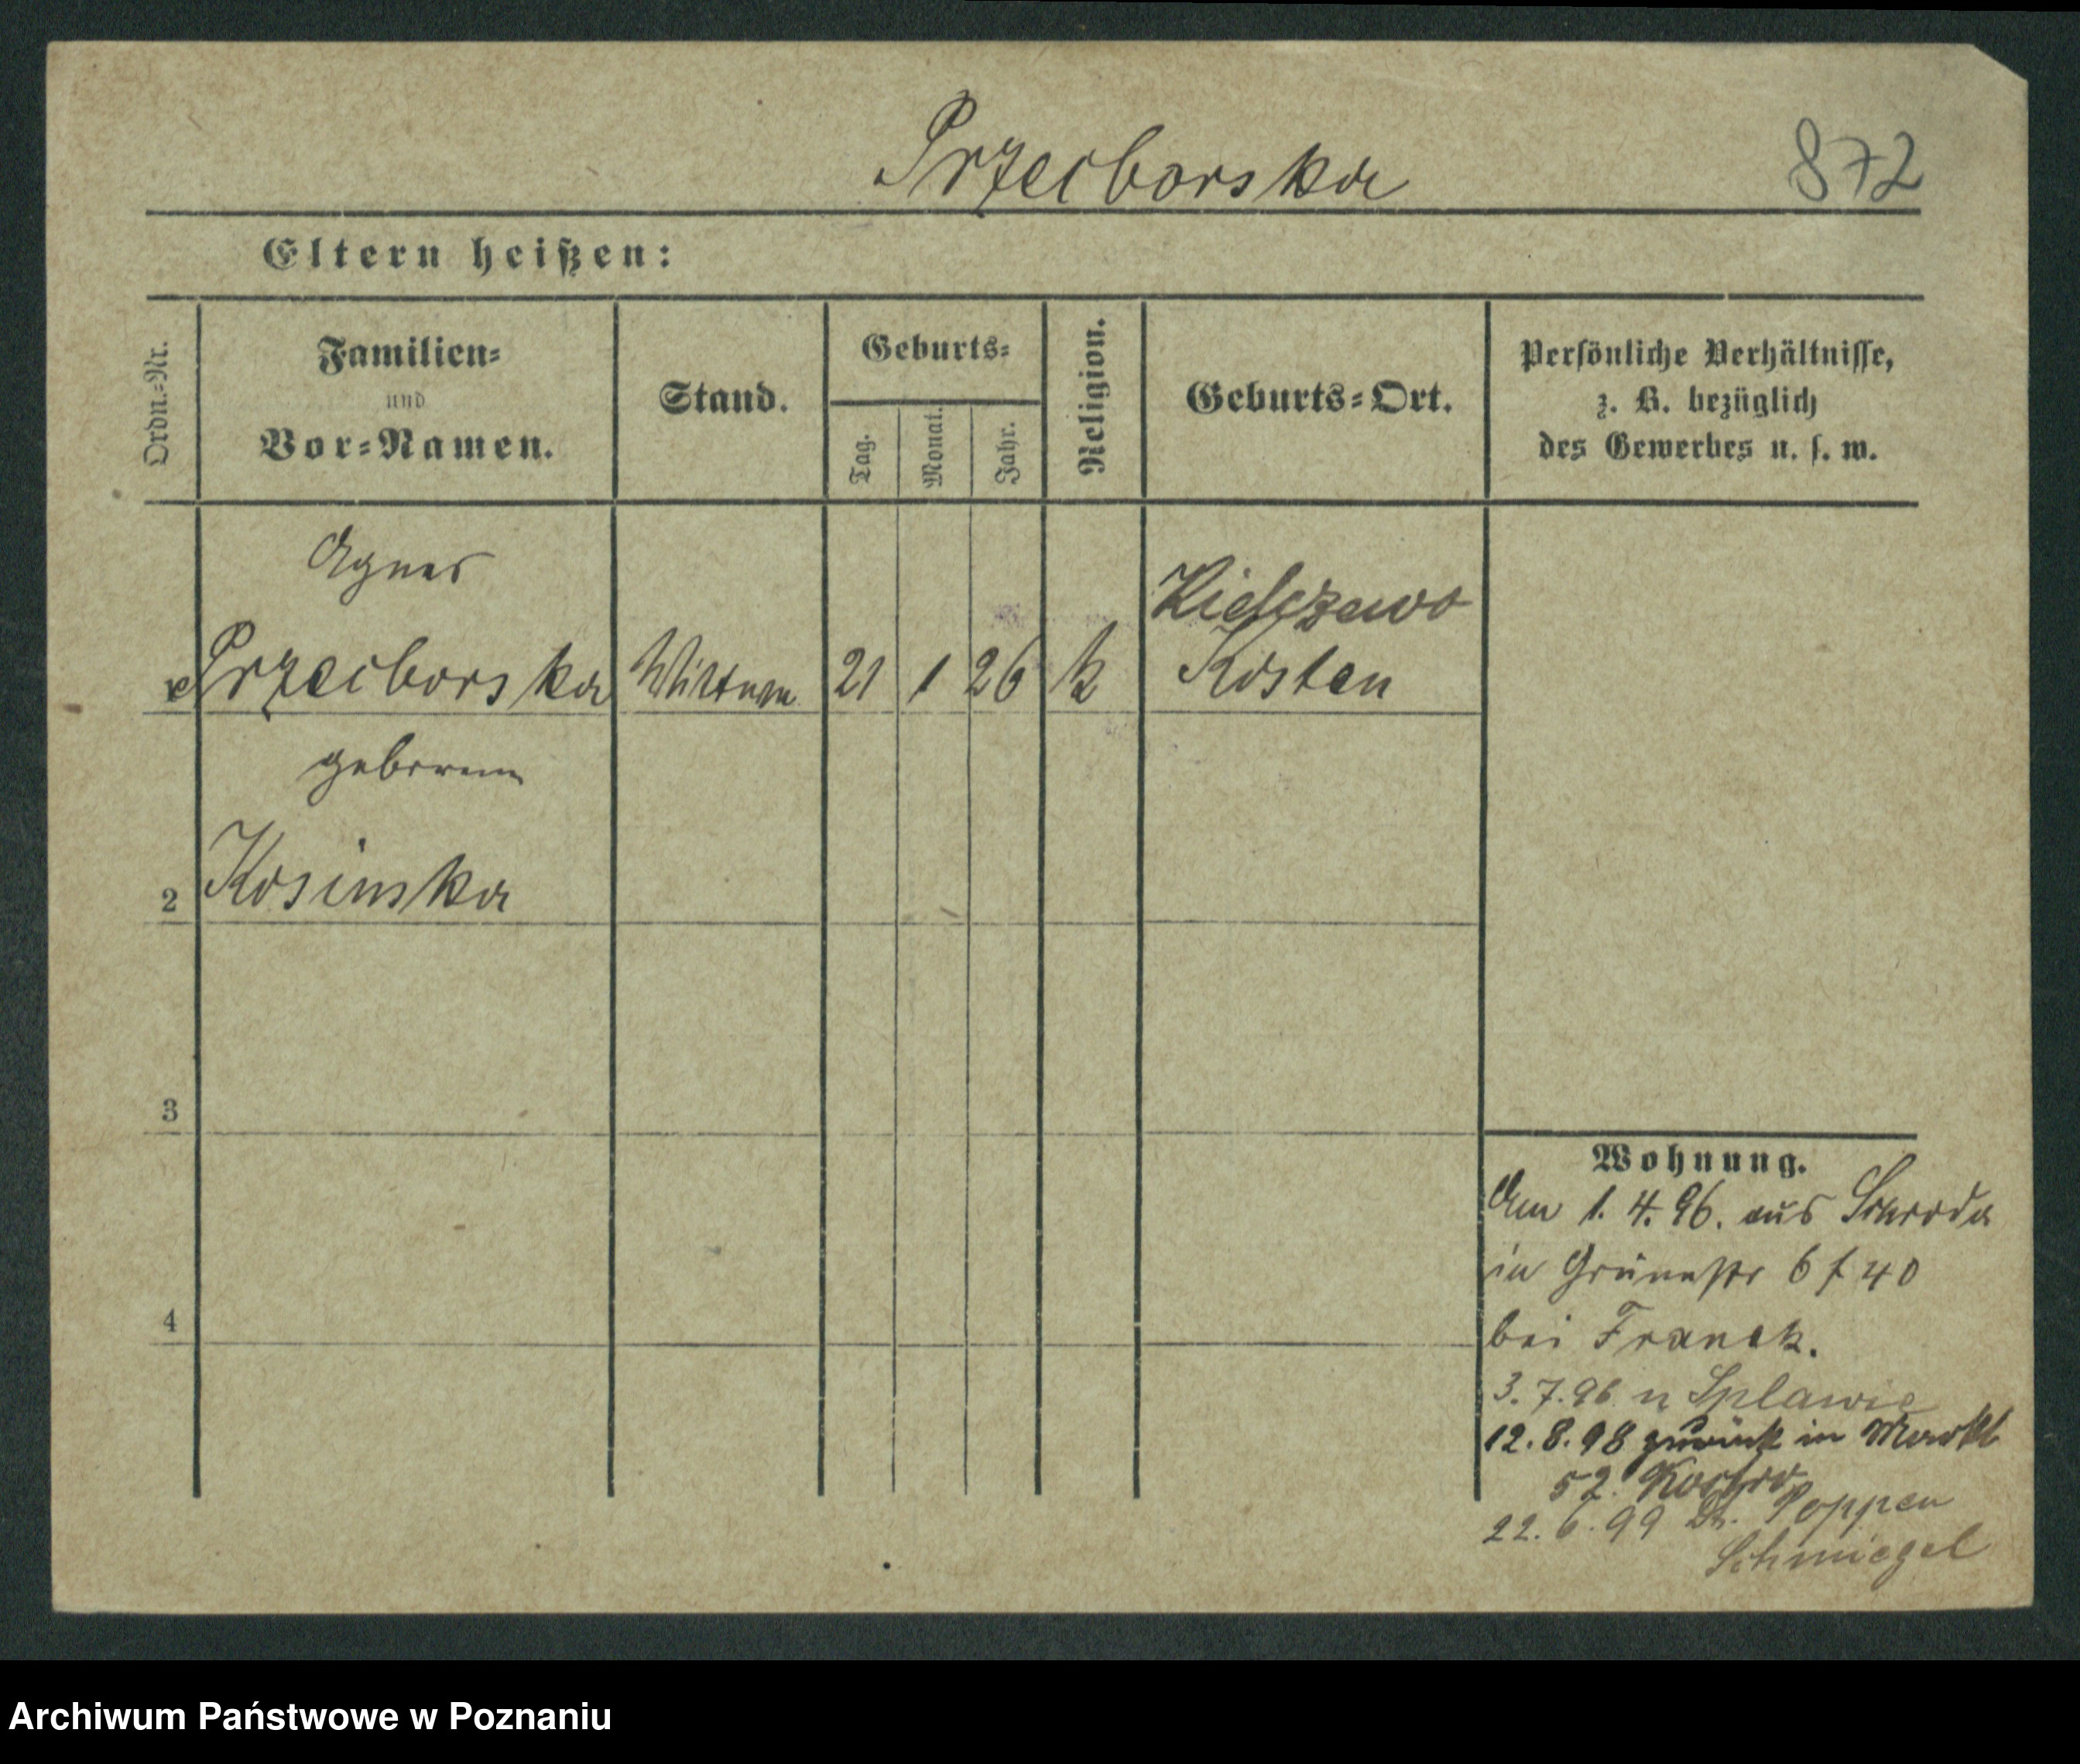 Przeiborska 872
Eltern heißen:
Ordn.=Nr.
Familien=
und
Vor=Namen.
Stand.
Geburts=
Tag.
Monat.
Jahr.
Religion.
Geburts=Ort.
Persönliche Verhältnisse,
z. B. bezüglich
des Gewerbes u. s. w.
Agnes
Przeiborska
Wittwe
21 1 26 k
Kielczewo
Kosten
geborene
2 Kosinska
3
4
Wohnung.
Am 1. 4. 96. aus Schroda
in Grünestr 6 f 40
bei Franck.
3. 7. 96 n Splawie
12. 8. 98 zurück in Markt
52.
22. 6. 99 Dt. Poppen
Schmiegel
Archiwum Państwowe w Poznaniu